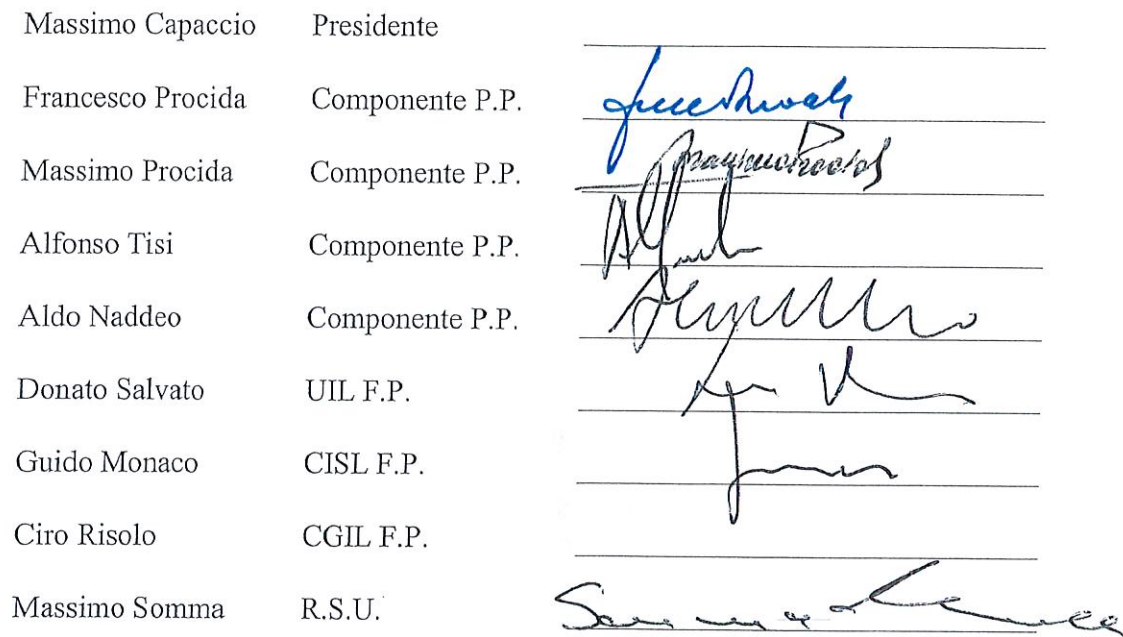 Massimo Capaccio Presidente
Francesco Procida Componente P.P.
Massimo Procida Componente P.P.
Alfonso Tisi Componente P.P.
Aldo Naddeo Componente P.P.
Donato Salvato UIL F.P.
Guido Monaco CISL F.P.
Ciro Risolo CGIL F.P.
Massimo Somma R.S.U.